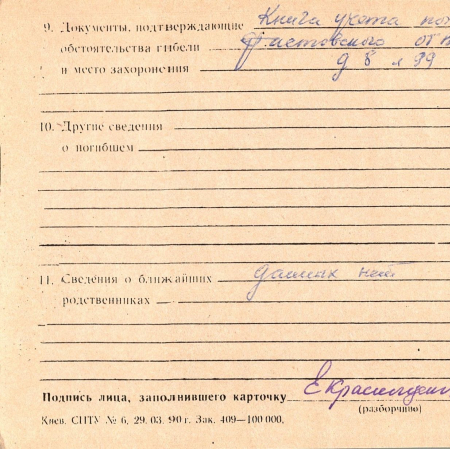 9. Документы, подтверждающие Книга учета
обстоятельства гибели Фастовского
и место захоронения д 8 л 99
10. Другие сведения
о погибшем
11. Сведения о ближайших данных нет
родственниках
Подпись лица, заполнившего карточку
(разборчиво)
Киев. СПТУ № 6, 29. 03. 90 г. Зак. 409—100 000.